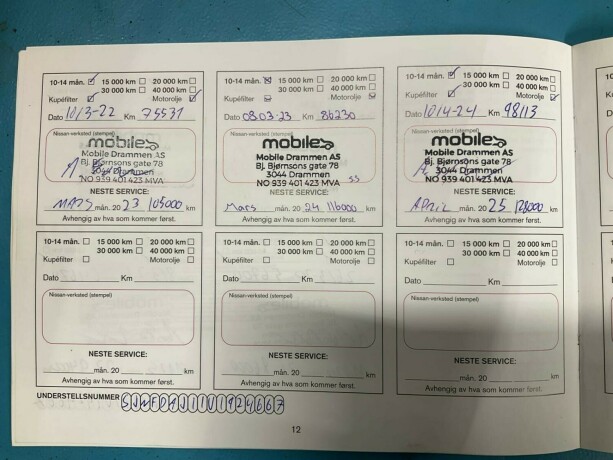 10-14 mån. 15 000 km 20 000 km
30 000 km 40 000 km
Kupéfilter Motorolje
Dato 10/3-22 Km 75531
Nissan-verksted (stempel)
mobile
Mobile Drammen AS
Bj. Bjørnsons gate 78
3044 Drammen
NO 939 401 423 MVA
NESTE SERVICE:
MARS mån. 20 23 105000 km
Avhengig av hva som kommer først.
10-14 mån. 15 000 km 20 000 km
30 000 km 40 000 km
Kupéfilter Motorolje
Dato 08.03-23 Km 86230
Nissan-verksted (stempel)
mobile
Mobile Drammen AS
Bj. Bjørnsons gate 78
3044 Drammen
NO 939 401 423 MVA
NESTE SERVICE:
Mars mån. 20 24 116000 km
Avhengig av hva som kommer først.
10-14 mån. 15 000 km 20 000 km
30 000 km 40 000 km
Kupéfilter Motorolje
Dato 10/4-24 Km 98113
Nissan-verksted (stempel)
mobile
Mobile Drammen AS
Bj. Bjørnsons gate 78
3044 Drammen
NO 939 401 423 MVA
NESTE SERVICE:
APRIL mån. 20 25 128000 km
Avhengig av hva som kommer først.
10-14 mån. 15 000 km 20 000 km
30 000 km 40 000 km
Kupéfilter Motorolje
Dato Km
Nissan-verksted (stempel)
NESTE SERVICE:
mån. 20 km
Avhengig av hva som kommer først.
10-14 mån. 15 000 km 20 000 km
30 000 km 40 000 km
Kupéfilter Motorolje
Dato Km
Nissan-verksted (stempel)
NESTE SERVICE:
mån. 20 km
Avhengig av hva som kommer først.
10-14 mån. 15 000 km 20 000 km
30 000 km 40 000 km
Kupéfilter Motorolje
Dato Km
Nissan-verksted (stempel)
NESTE SERVICE:
mån. 20 km
Avhengig av hva som kommer først.
UNDERSTELLSNUMMER
12